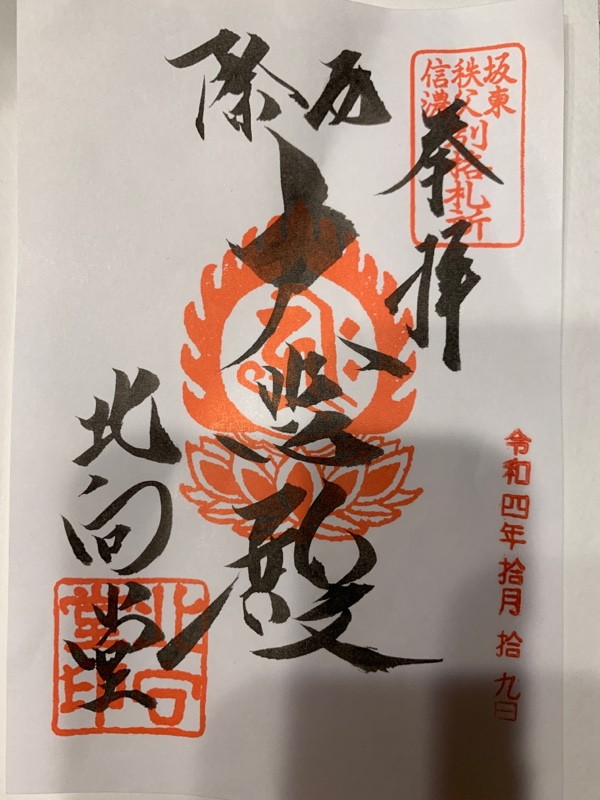 坂東
秩父
信濃
別格札所
奉拝
厄除
大悲殿
北向堂
北向堂印
令和四年拾月拾九日